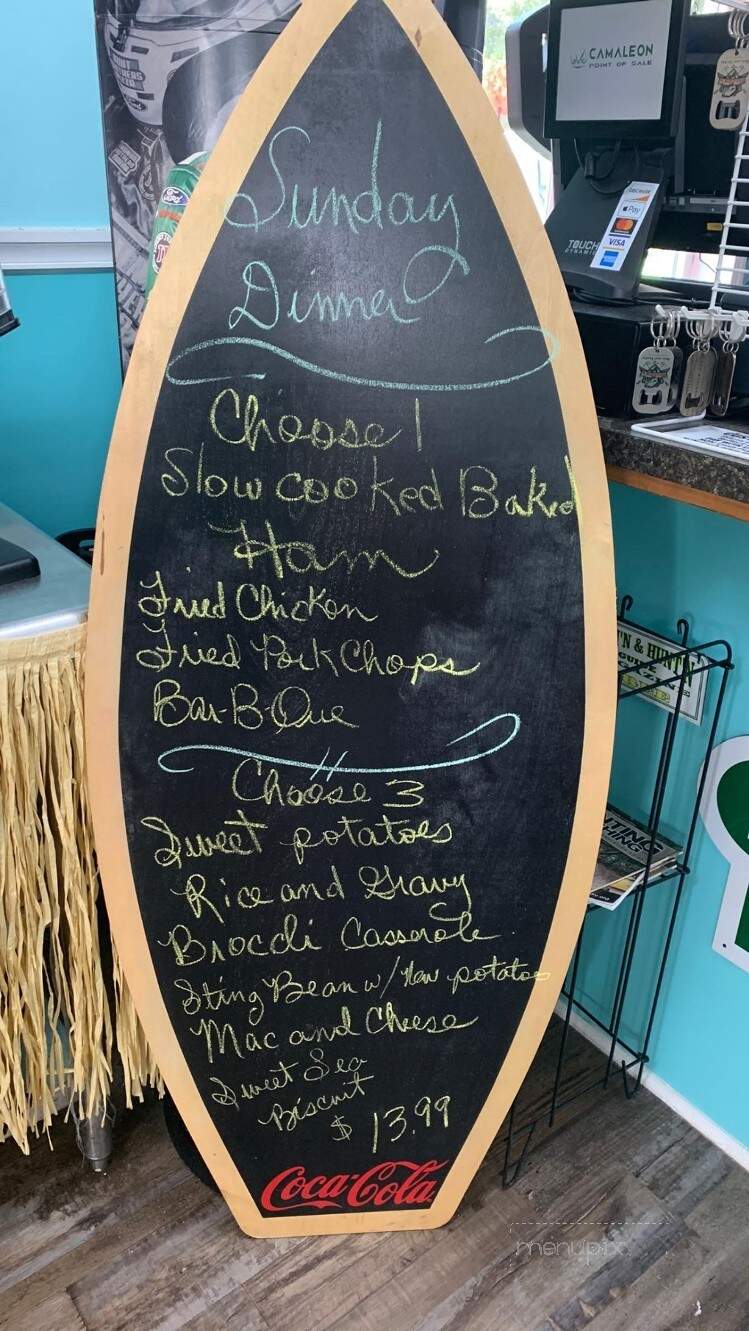 CAMALEON
POINT OF SALE
Ford
DISCOVER
Pay
VISA
TOUCH
DYNAMIC
Sunday
Dinner
Choose 1
Slow cooked Baked
Ham
Fried Chicken
Fried Pork Chops
Bar-B-Que
Choose 3
Sweet potatoes
Rice and Gravy
Broccli Casserole
String Bean w/ New potatoes
Mac and Cheese
Sweet Sea
Biscuit
$ 13.99
Coca-Cola
'N & HUNT'N
menupix